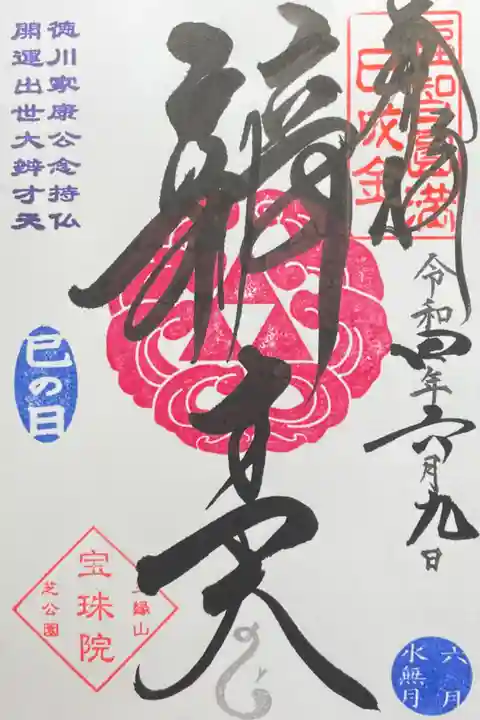 奉拝
福智円満
日咬金
令和四年六月九日
辨才天
徳川家康公念持仏
開運出世大辨才天
巳の日
三縁山
宝珠院
芝公園
六月
水無月